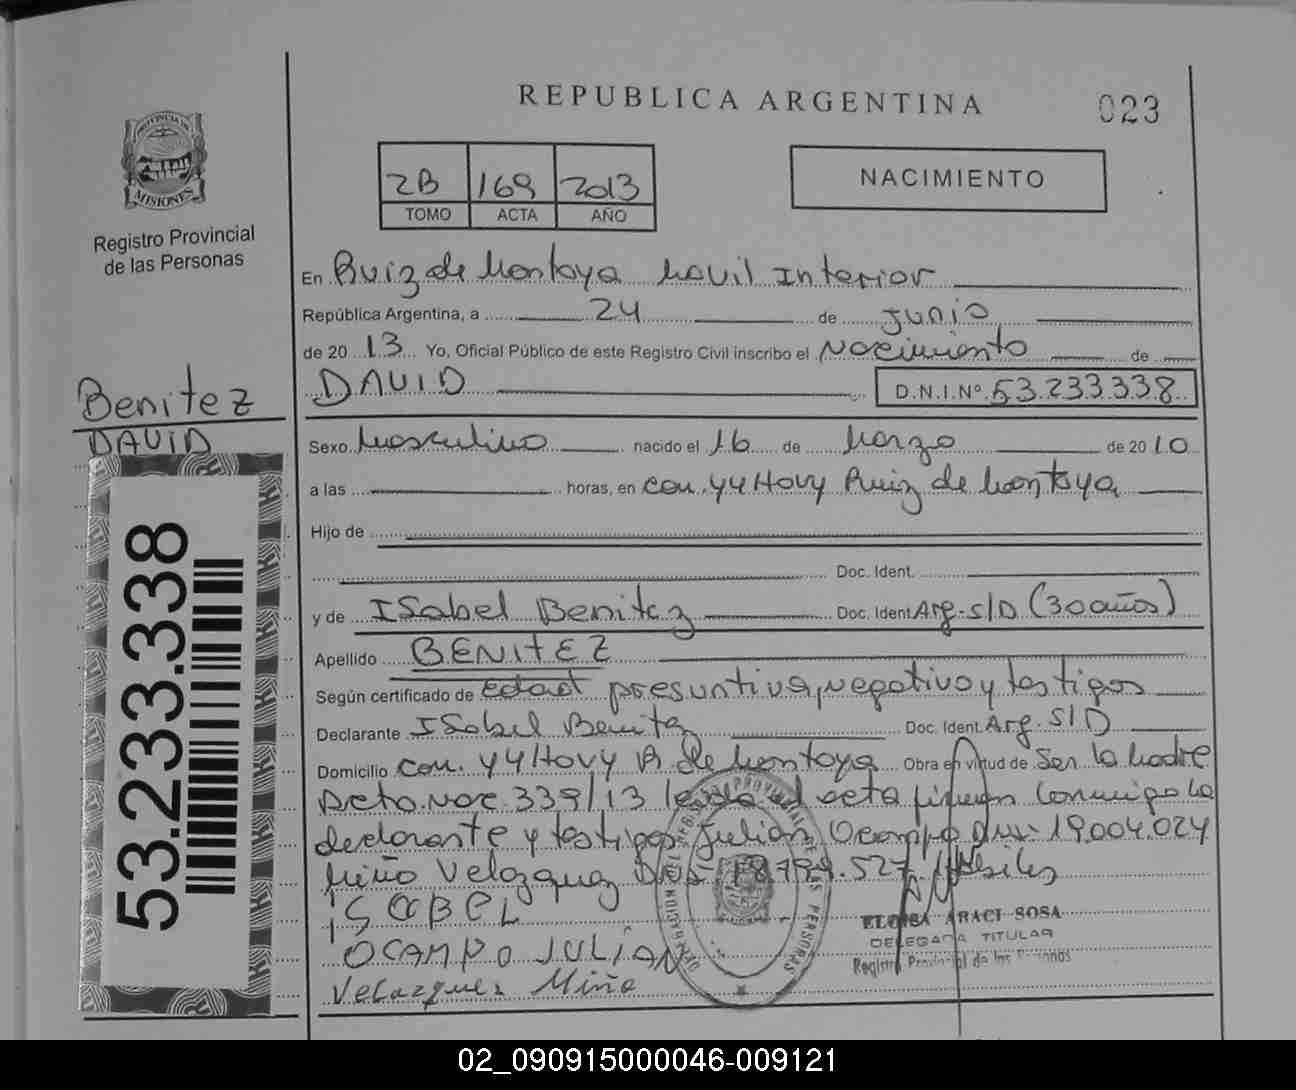 REPUBLICA ARGENTINA
023
PROVINCIA DE
MISIONES
Registro Provincial
de las Personas
2B 169 2013
TOMO ACTA AÑO
NACIMIENTO
En Ruiz de Montoya Movil Interior
República Argentina, a 24 de Junio
de 20 13 Yo, Oficial Público de este Registro Civil inscribo el Nacimiento de
DAVID D.N.I.Nº 53.233.338
Benitez
DAVID
53.233.338
Sexo Masculino nacido el 16 de Marzo de 2010
a las horas, en Com. Y Y Hovy Ruiz de Montoya
Hijo de
Doc. Ident.
y de ISabel Benitez Doc. Ident Arg-S/D (30 años)
Apellido BENITEZ
Según certificado de edad presuntiva, negativo y testigos
Declarante ISabel Benitez Doc. Ident. Arg. S/D
Domicilio Com. Y Y Hovy R. de Montoya Obra en virtud de Ser la Madre
Acta Nac. 339/13 leida el acta firman conmigo la
declarante y testigos Julian Ocampo DNI 19.004.024
Miño Velazquez
iSABEL
OCAMPO JULIAN
Velazquez Miño
ELOISA ARACI SOSA
DELEGADA TITULAR
Registro Provincial de las Personas
02_090915000046-009121